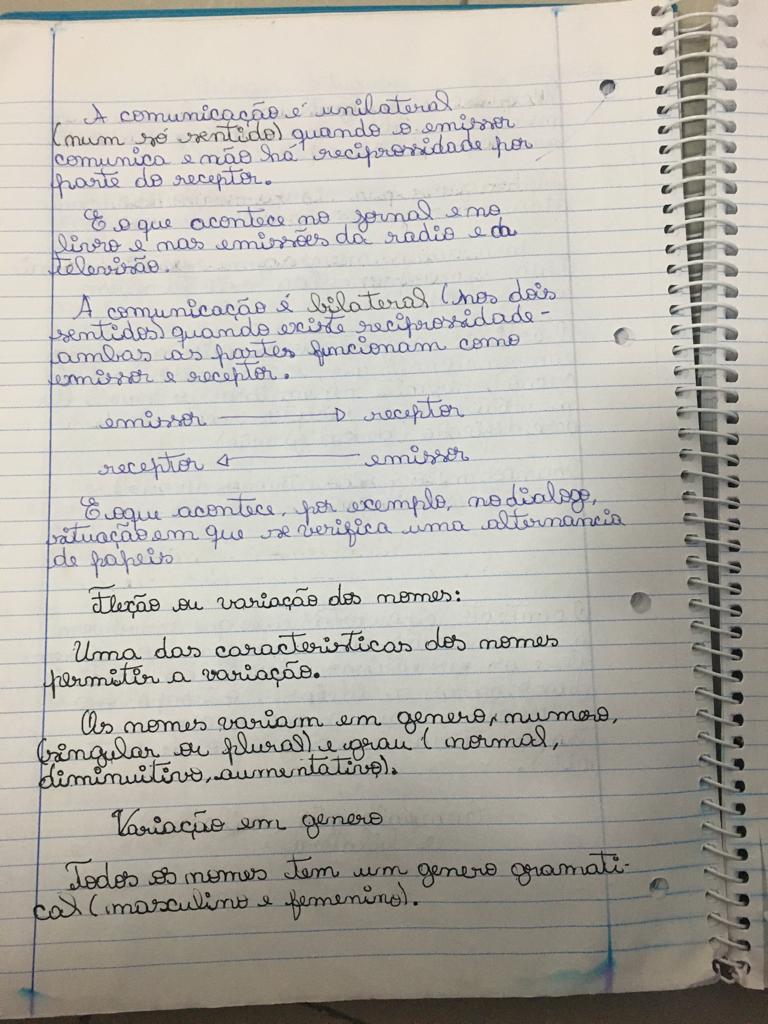 A comunicação é unilateral
(num só sentido) quando o emissor
comunica e não há reciprossidade por
parte do receptor.
E o que acontece no jornal e no
livro e nas emissões da radio e da
televisão.
A comunicação é bilateral (nos dois
sentidos) quando existe reciprossidade-
ambas as partes funcionam como
emissor e receptor.
emissor → receptor
receptor ← emissor
E o que acontece, por exemplo, no dialogo,
situação em que se verifica uma alternancia
de papeis
Flexão ou variação dos nomes:
Uma das caracteristicas dos nomes
permitir a variação.
Os nomes variam em genero, numero,
(singular ou plural) e grau (normal,
diminuitivo, aumentativo).
Variação em genero
Todos os nomes tem um genero gramati-
cal (masculino e femenino).